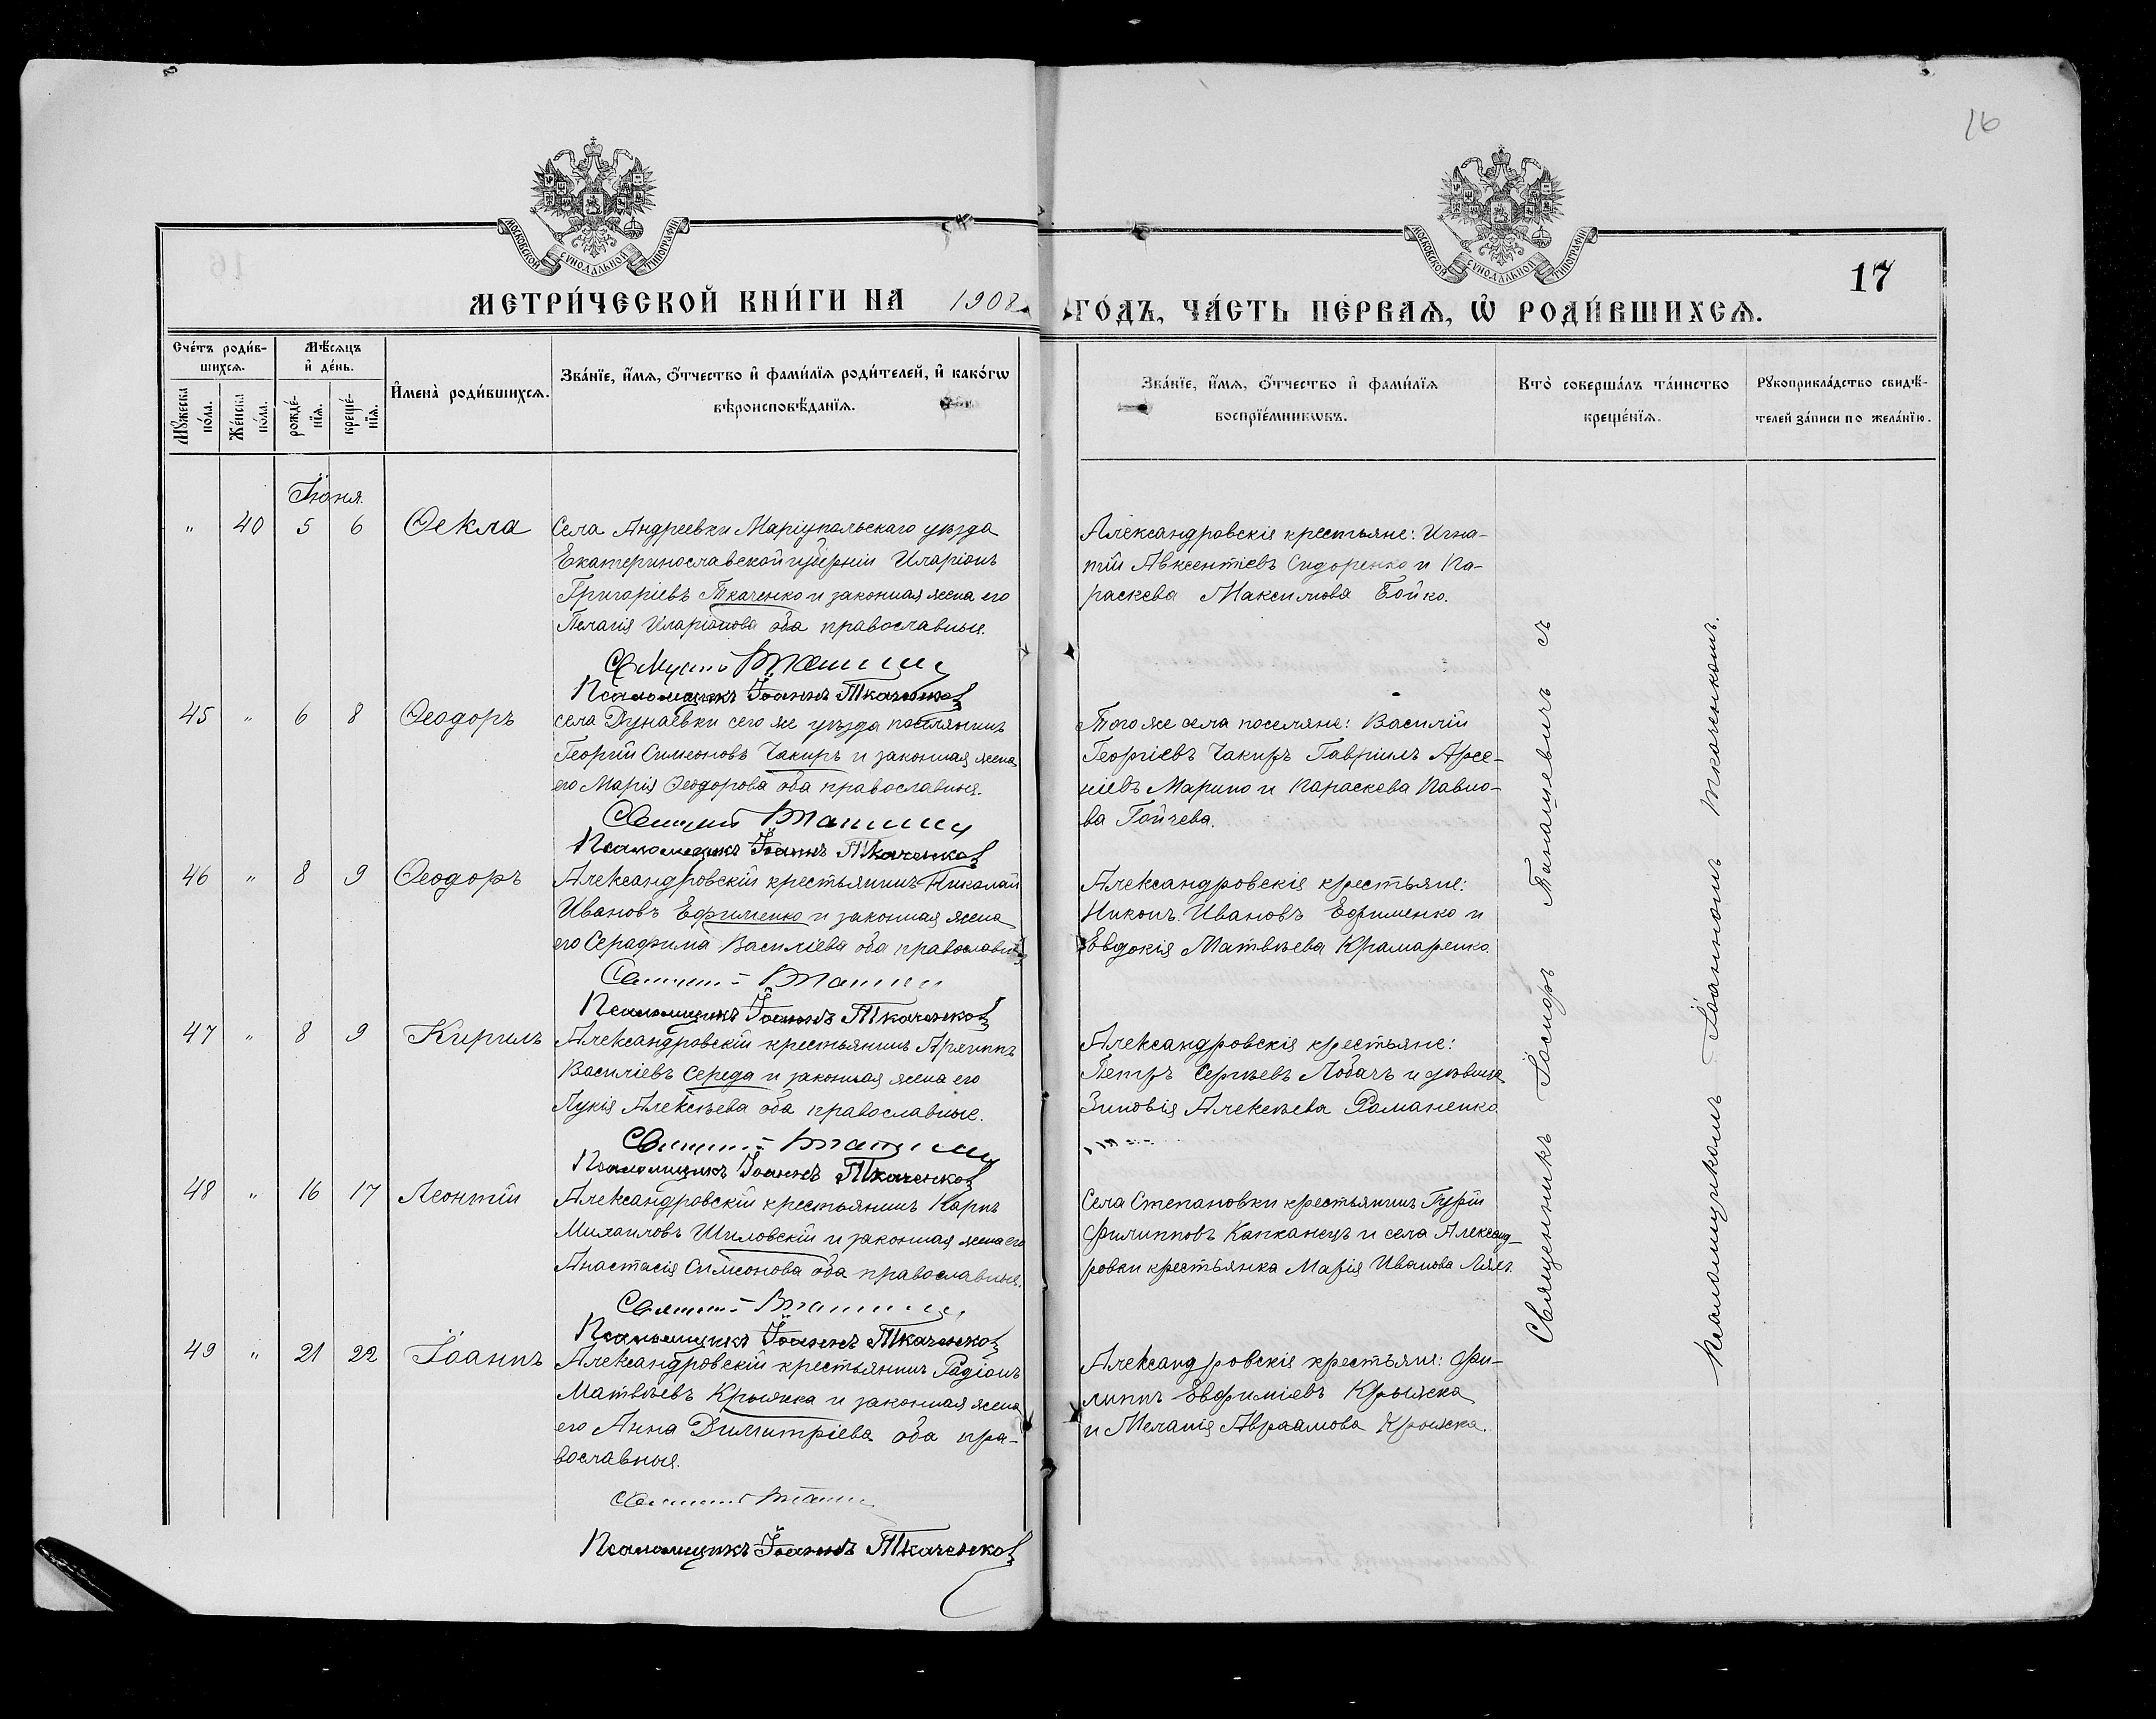 16
МОСКОВСКОЙ СѴНОДАЛЬНОЙ ТИПОГРАФІИ
МОСКОВСКОЙ СѴНОДАЛЬНОЙ ТИПОГРАФІИ
17
МЕТРИ́ЧЕСКОЙ КНИ́ГИ НА 1908
ГО́ДЪ, ЧА́СТЬ ПЕ́РВАѦ, Ѡ҆ РОДИ́ВШИХСѦ.
Сче́тъ роди́в-
шихсѧ.
Мꙋ́жеска по́ла.
Же́нска по́ла.
Мѣ́сѧцъ
и҆ де́нь.
рожде́-
нїѧ.
креще́-
нїѧ.
И҆мена̀ роди́вшихсѧ.
Зва́нїе, и҆́мѧ, ѻ҆́тчество и҆ фами́лїѧ роди́телей, и҆ како́гѡ
вѣроисповѣ́данїѧ.
Зва́нїе, и҆́мѧ, ѻ҆́тчество и҆ фами́лїѧ
воспрїе́мникѡвъ.
Кто̀ соверша́лъ та́инство
креще́нїѧ.
Рꙋкоприкла́дство свидѣ́-
телей за́писи по жела́нїю.
Іюня.
" 40 5 6 Ѳекла
Села Андреевки Маріупольскаго уѣзда
Екатеринославской губерніи Иларіонъ
Григоріевъ Ткаченко и законная жена его
Пелагія Иларіонова оба православные.
Псаломщикъ Іоаннъ Ткаченко
Александровскія крестьяне: Игна-
тій Авксентіевъ Сидоренко и Па-
раскева Максимова Бойко.
45 " 6 8 Ѳеодоръ
села Дунаевки сего же уѣзда поселянинъ
Георгій Симеоновъ Чакиръ и законная жена
его Марія Ѳеодорова оба православныя.
Псаломщикъ Іоаннъ Ткаченко
Того же села поселяне: Василій
Георгіевъ Чакиръ Гавріилъ Арсе-
ніевъ Марино и Параскева Павло-
ва Гойчева.
46 " 8 9 Ѳеодоръ
Александровскій крестьянинъ Николай
Ивановъ Ефименко и законная жена
его Серафима Василіева оба православны
Псаломщикъ Іоаннъ Ткаченко
Александровскія крестьяне:
Никонъ Ивановъ Ефименко и
Евдокія Матвѣева Крамаренко.
47 " 8 9 Кирилъ
Александровскій крестьянинъ
Василіевъ Середа и законная жена его
Лукія Алексѣева оба православные.
Псаломщикъ Іоаннъ Ткаченко
Александровскія крестьяне:
Петръ Сергѣевъ Лобачъ и дѣвица
Зиновія Алексѣева Романенко.
48 " 16 17 Леонтій
Александровскій крестьянинъ Карпъ
Михаиловъ Шиловскій и законная жена его
Анастасія Симеонова оба православныя.
Псаломщикъ Іоаннъ Ткаченко
Села Степановки крестьянинъ Гурій
Филипповъ Капканецъ и села Александ-
ровки крестьянка Марія Иванова
49 " 21 22 Іоаннъ
Александровскій крестьянинъ Родіонъ
Матвѣевъ Крыжка и законная жена
его Анна Димитріева оба пра-
вославныя.
Псаломщикъ Іоаннъ Ткаченко
Александровскія крестьяне: Фи-
липпъ Евфиміевъ Крыжка
и Меланія Авраамова Крыжка.
Священникъ Іосифъ Танашевичъ съ
Псаломщикомъ Іоанномъ Ткаченкомъ.